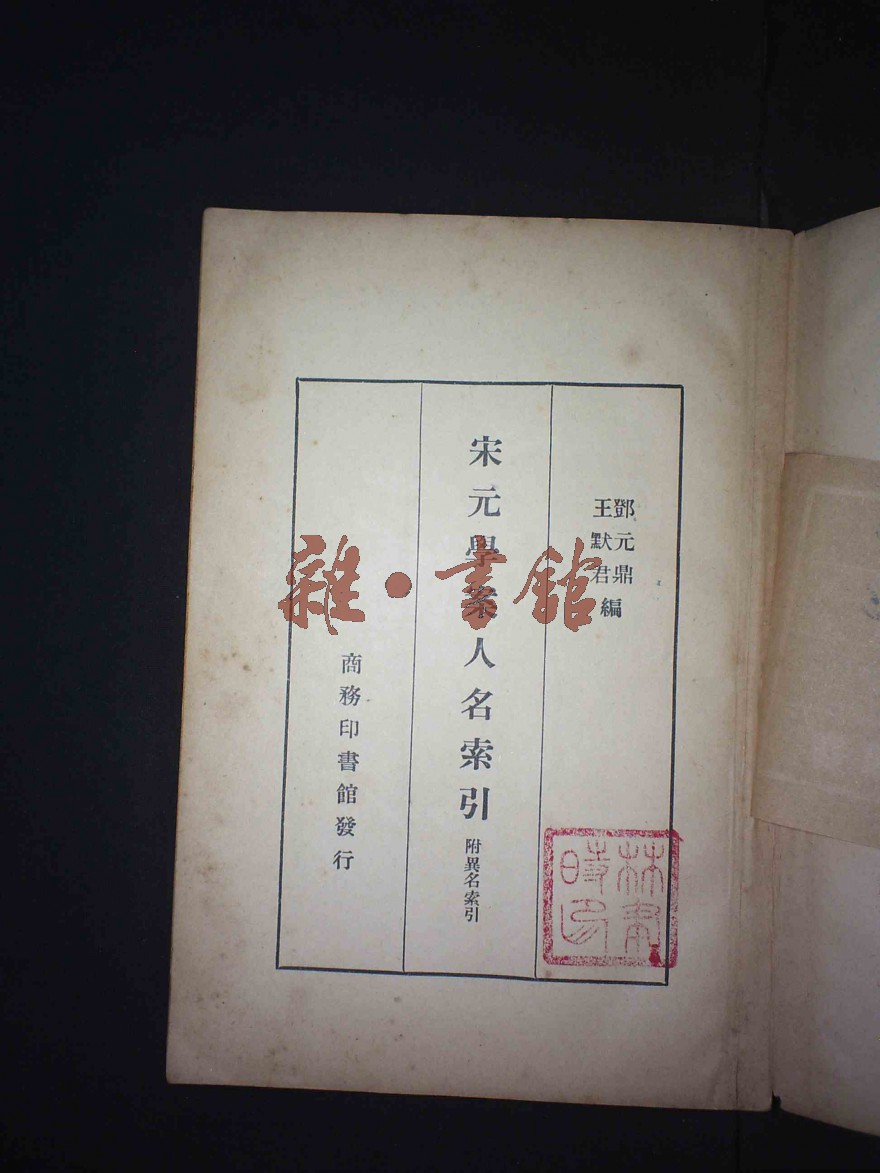 鄧元鼎
王默君
編
宋元學案人名索引
附異名索引
商務印書館發行
雜·書館